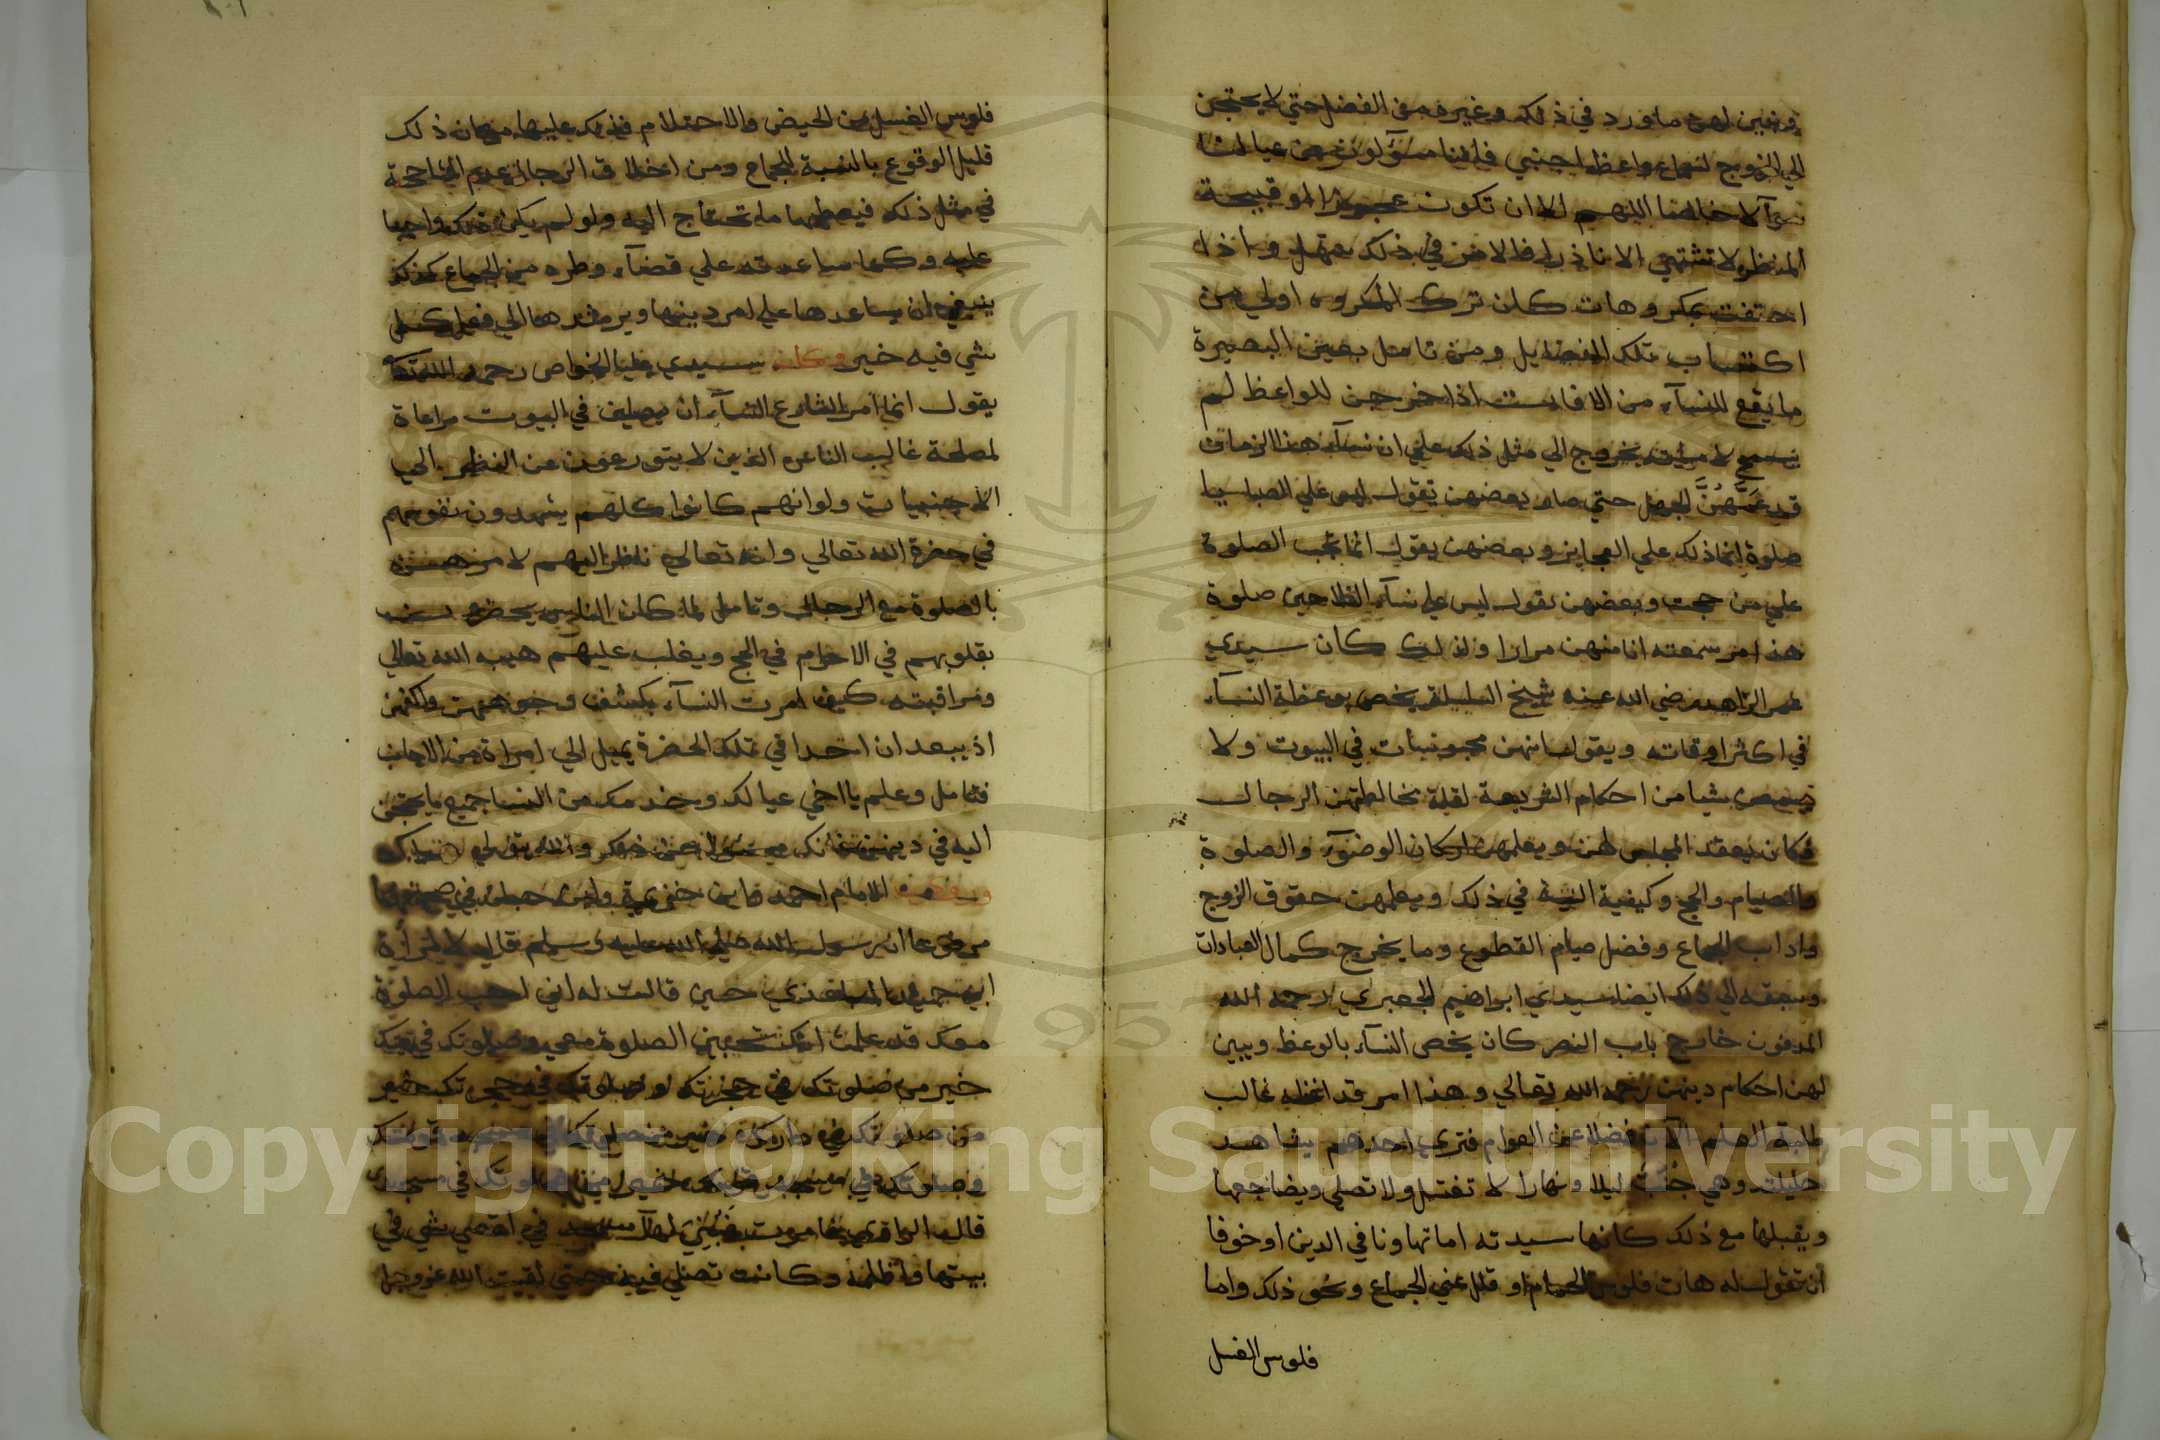 ونبين لهن ما ورد في ذلك وغيره من الفضل حتي لا يحتجن
الي الخروج لسماع واعظ اجنبي فاننا مسؤلون عن عيالنا
الا ان تكون عجوزا او قبيحة
المنظر لا تشتهي الا نادرا فالامر في ذلك سهل واذا
احتفت بمكروهات كان ترك المكروه اولي من
اكتساب تلك الفضايل ومن تامل بعين البصيرة
ما يقع للنسآء من الافات اذا خرجن للواعظ لم
يسمح لامراته بخروج الي مثل ذلك علي ان نسآء هذا الزمان
قد عمَّهُنَّ الجهل حتي صار بعضهن تقول ليس علي الصبايا
صلوة انما ذلك علي العجايز وبعضهن يقول انما تجب الصلوة
علي من حجت وبعضهن تقول ليس علي نسآء الفلاحين صلوة
هذا امر سمعته انا منهن مرارا ولذلك كان سيدي
عمر الزاهد رضي الله عنه شيخ السلسلة يخص بوعظه النسآء
في اكثر اوقاته ويقول انهن محبوسات في البيوت ولا
يسمعن شيا من احكام الشريعة لقلة مخالطتهن الرجال
فكان يعقد المجلس لهن ويعلمهن اركان الوضوء والصلوة
والصيام والحج وكيفية النية في ذلك ويعلمهن حقوق الزوج
واداب الجماع وفضل صيام التطوع وما يخرج كمال العبادات
وسبقه الي ذلك ايضا سيدي ابراهيم الجعبري رحمه الله
المدفون خارج باب النصر كان يخص النسآء بالوعظ ويبين
لهن احكام دينهن رحمه الله تعالي وهذا امر قد اغفله غالب
طلبة العلم الآن فضلا عن العوام فتري احدهم يشاهد
حليلته وهي جنب ليلا ونهارا لا تغتسل ولا تصلي ويضاجعها
ويقبلها مع ذلك كانها سيدته اما تهاونا في الدين او خوفا
ان تقول له هات فلوس الحمام او قلل عني الجماع ونحو ذلك واما
فلوس الغسل
فلوس الغسل من الحيض والاحتلام فذلك عليها من ذلك
قليل الوقوع بالنسبة للجماع ومن اخلاق الرجال عدم المشاححة
في مثل ذلك فيعطيها ما تحتاج اليه ولو لم يكن ذلك واجبا
عليه وكما ساعدته علي قضآء وطره من الجماع كذلك
ينبغي ان يساعدها علي امر دينها ويرشدها الي فعل كل
شي فيه خير وكان سيدي عليا الخواص رحمه الله
يقول انما امر الشارع النسآء ان يصلين في البيوت مراعاة
لمصلحة غالب الناس الذين لا يتورعون عن النظر الي
الاجنبيات ولو انهم كانوا كلهم يشهدون نفوسهم
في حضرة الله تعالي وانه تعالي ناظر اليهم لامرهن
بالصلوة مع الرجال وتامل لما كان الناس يحضرون
بقلوبهم في الاحرام في الحج ويغلب عليهم هيبه الله تعالي
ومراقبته كيف امرت النسآء بكشف وجوههن واكفهن
اذ يبعد ان احدا في تلك الحضرة يميل الي امراة من الاجانب
فتامل وعلم يا اخي عيالك وخدمك من النسا جميع ما يحتجن
اليه في دينهن فانك مسؤل عن ذلك والله يتولي هداك
الامام احمد وابن خزيمة وابن حبان في
مرفوعا ان رسول الله صلي الله عليه وسلم قال لامرأة
ابي حميد الساعدي حين قالت له اني احب الصلوة
معك قد علمت انك تحبين الصلوة معي وصلوتك في بيتك
خير من صلوتك في حجرتك وصلوتك في حجرتك خير
من صلوتك في دارك
وصلوتك في مسجد قومك خير من صلوتك في مسجدي
قال الراوي فامرت فبُنِيَ لها مسجد في اقصي شي في
بيتها واظلمه وكانت تصلي فيه حتي لقيت الله عز وجل